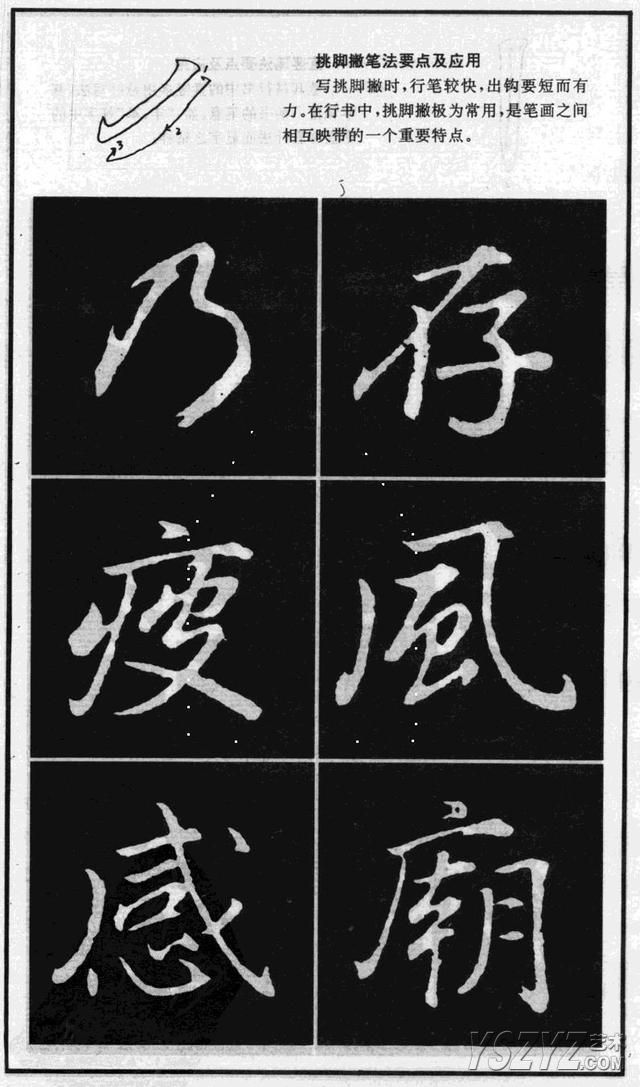 挑脚撇笔法要点及应用
写挑脚撇时,行笔较快,出钩要短而有
力。在行书中,挑脚撇极为常用,是笔画之间
相互映带的一个重要特点。
1
2
3
乃 存
瘦 風
感 廟
YSZYZ艺术
.COM